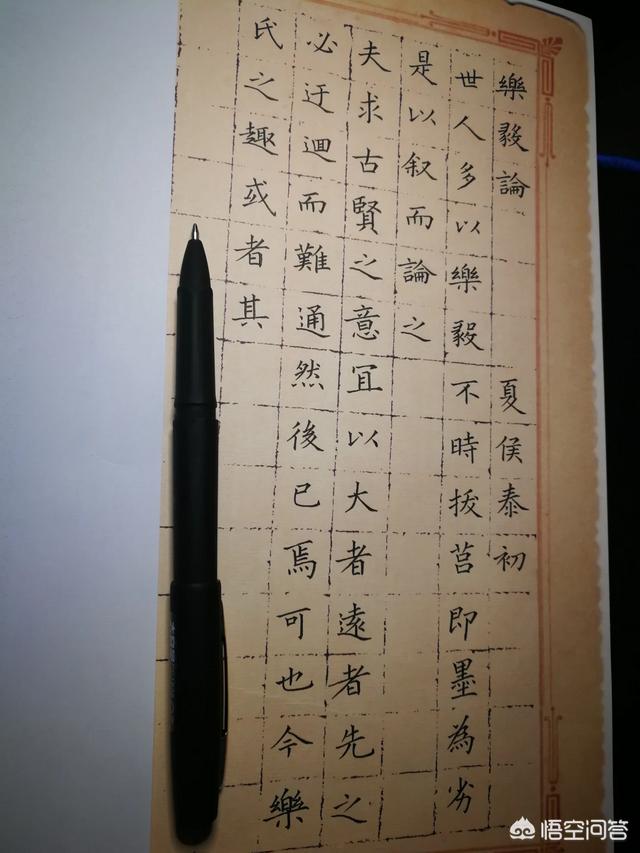 樂毅論 夏侯泰初
世人多以樂毅不時拔莒即墨為劣
是以叙而論之
夫求古賢之意宜以大者遠者先之
必迂迴而難通然後已焉可也今樂
氏之趣或者其
悟空问答